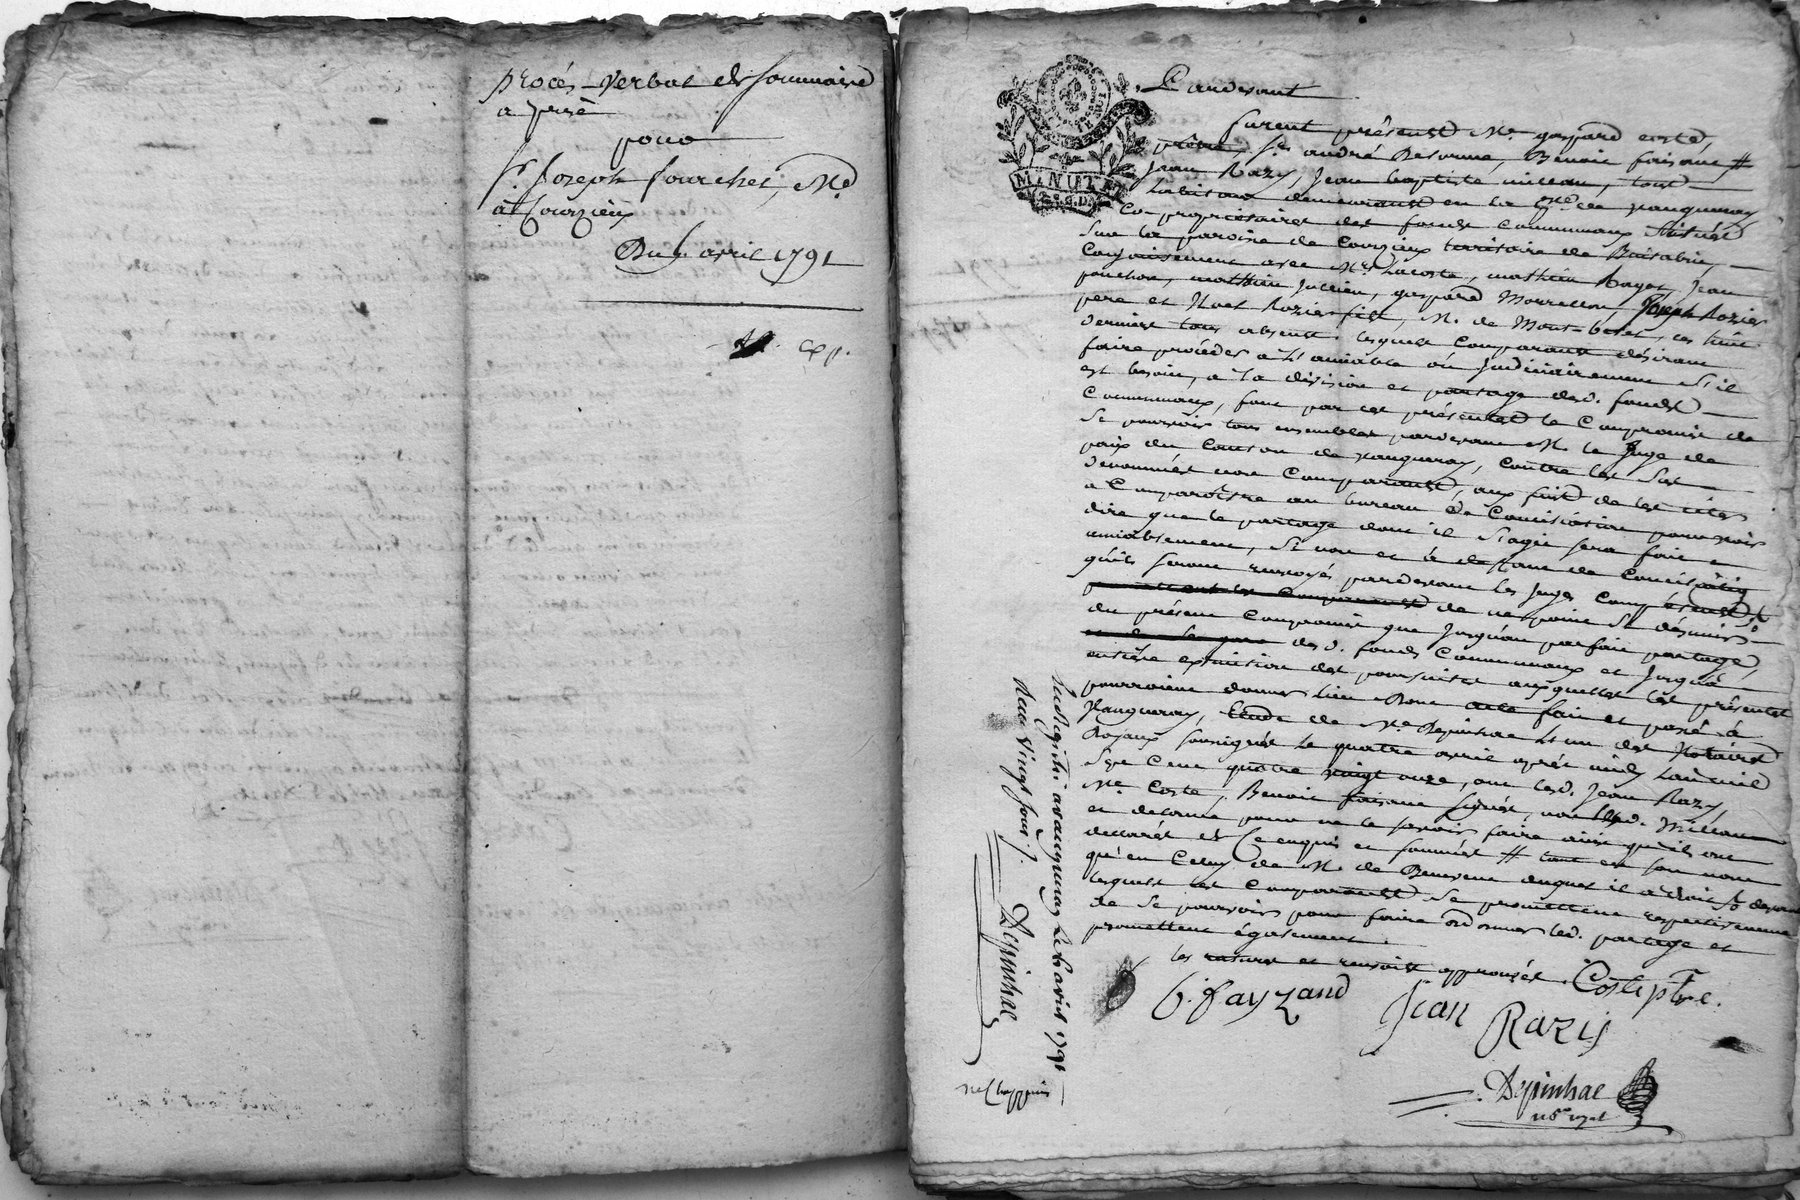 procés-verbal de sommaire
a prise
pour
Sr. Joseph fourchet, Md.
à Courzieux
Du 5. avril 1791
Exp.
Pardevant
furent présents Me. gaspard coste,
prêtre, Sr. andré Delorme, Benoit faisant, #
Jean Razy, Jean baptiste milleau, tous
habitans demeurants en la psse. de vaugneray
Copropriétaires des fonds Communaux situés
sur la paroisse de Courzieux territoire de
Conjointement avec Mrs. Lacoste, mathieu Bayet, Jean
ponchon, mathieu Jullien, gaspard Morrellon, Joseph Rozier
pere et Noel Rozier fils, M. de Mont-belet, ces huit
derniers tous absents lesquels Comparants désirant
faire procéder a l'amiable ou Judiciairement s'il
est besoin, a la division et partage desd. fonds
Communaux, font par ces présentes le Compromis de
se pourvoir tous ensembles pardevant M. le Juge de
paix du Canton de vaugneray, contre les sus
denommés non Comparants, aux fins de les citer
a Comparoitre au bureau de Conciliation pour voir
dire que le partage dont il s'agit sera fait
amiablement, si non et à deffaut de Conciliation
qu'ils seront renvoyés pardevant les Juges Compétents
de ne point se désunir
du présent Compromis que Jusqu'au parfait partage
desd. fonds Communaux et Jusqu'à
entière exécution des poursuites auxquelles les présentes
pourroient donner lieu Dont acte fait et passé à
Vaugneray, Etude de Me. Depinhac l'un des Notaires
Royaux soussignés le quatre avril après midy l'an mil
Sept Cent quatre vingt onze, ont lesd. Jean Razy,
Me. Coste, Benoit faisant signés, non lesd. Milleau
et delorme pour ne le savoir faire ainsi qu'ils ont
declarés de ce enquis et sommés # tant en son nom
qu'en Celuy de M. de Benevent duquel il a droit
lesquels les Comparants se promettent respectivement
de se pourvoir pour faire ordonner led. partage et
promettent également.
les rature et renvoit approuvés. Coste ptre.
b. fayzand
Jean Razij
Depinhac
nore. royal
Enregistré a vaugneray le 6 avril 1791
Reçu vingt sous.
Depinhac
MINUTE
2.s.8.D.